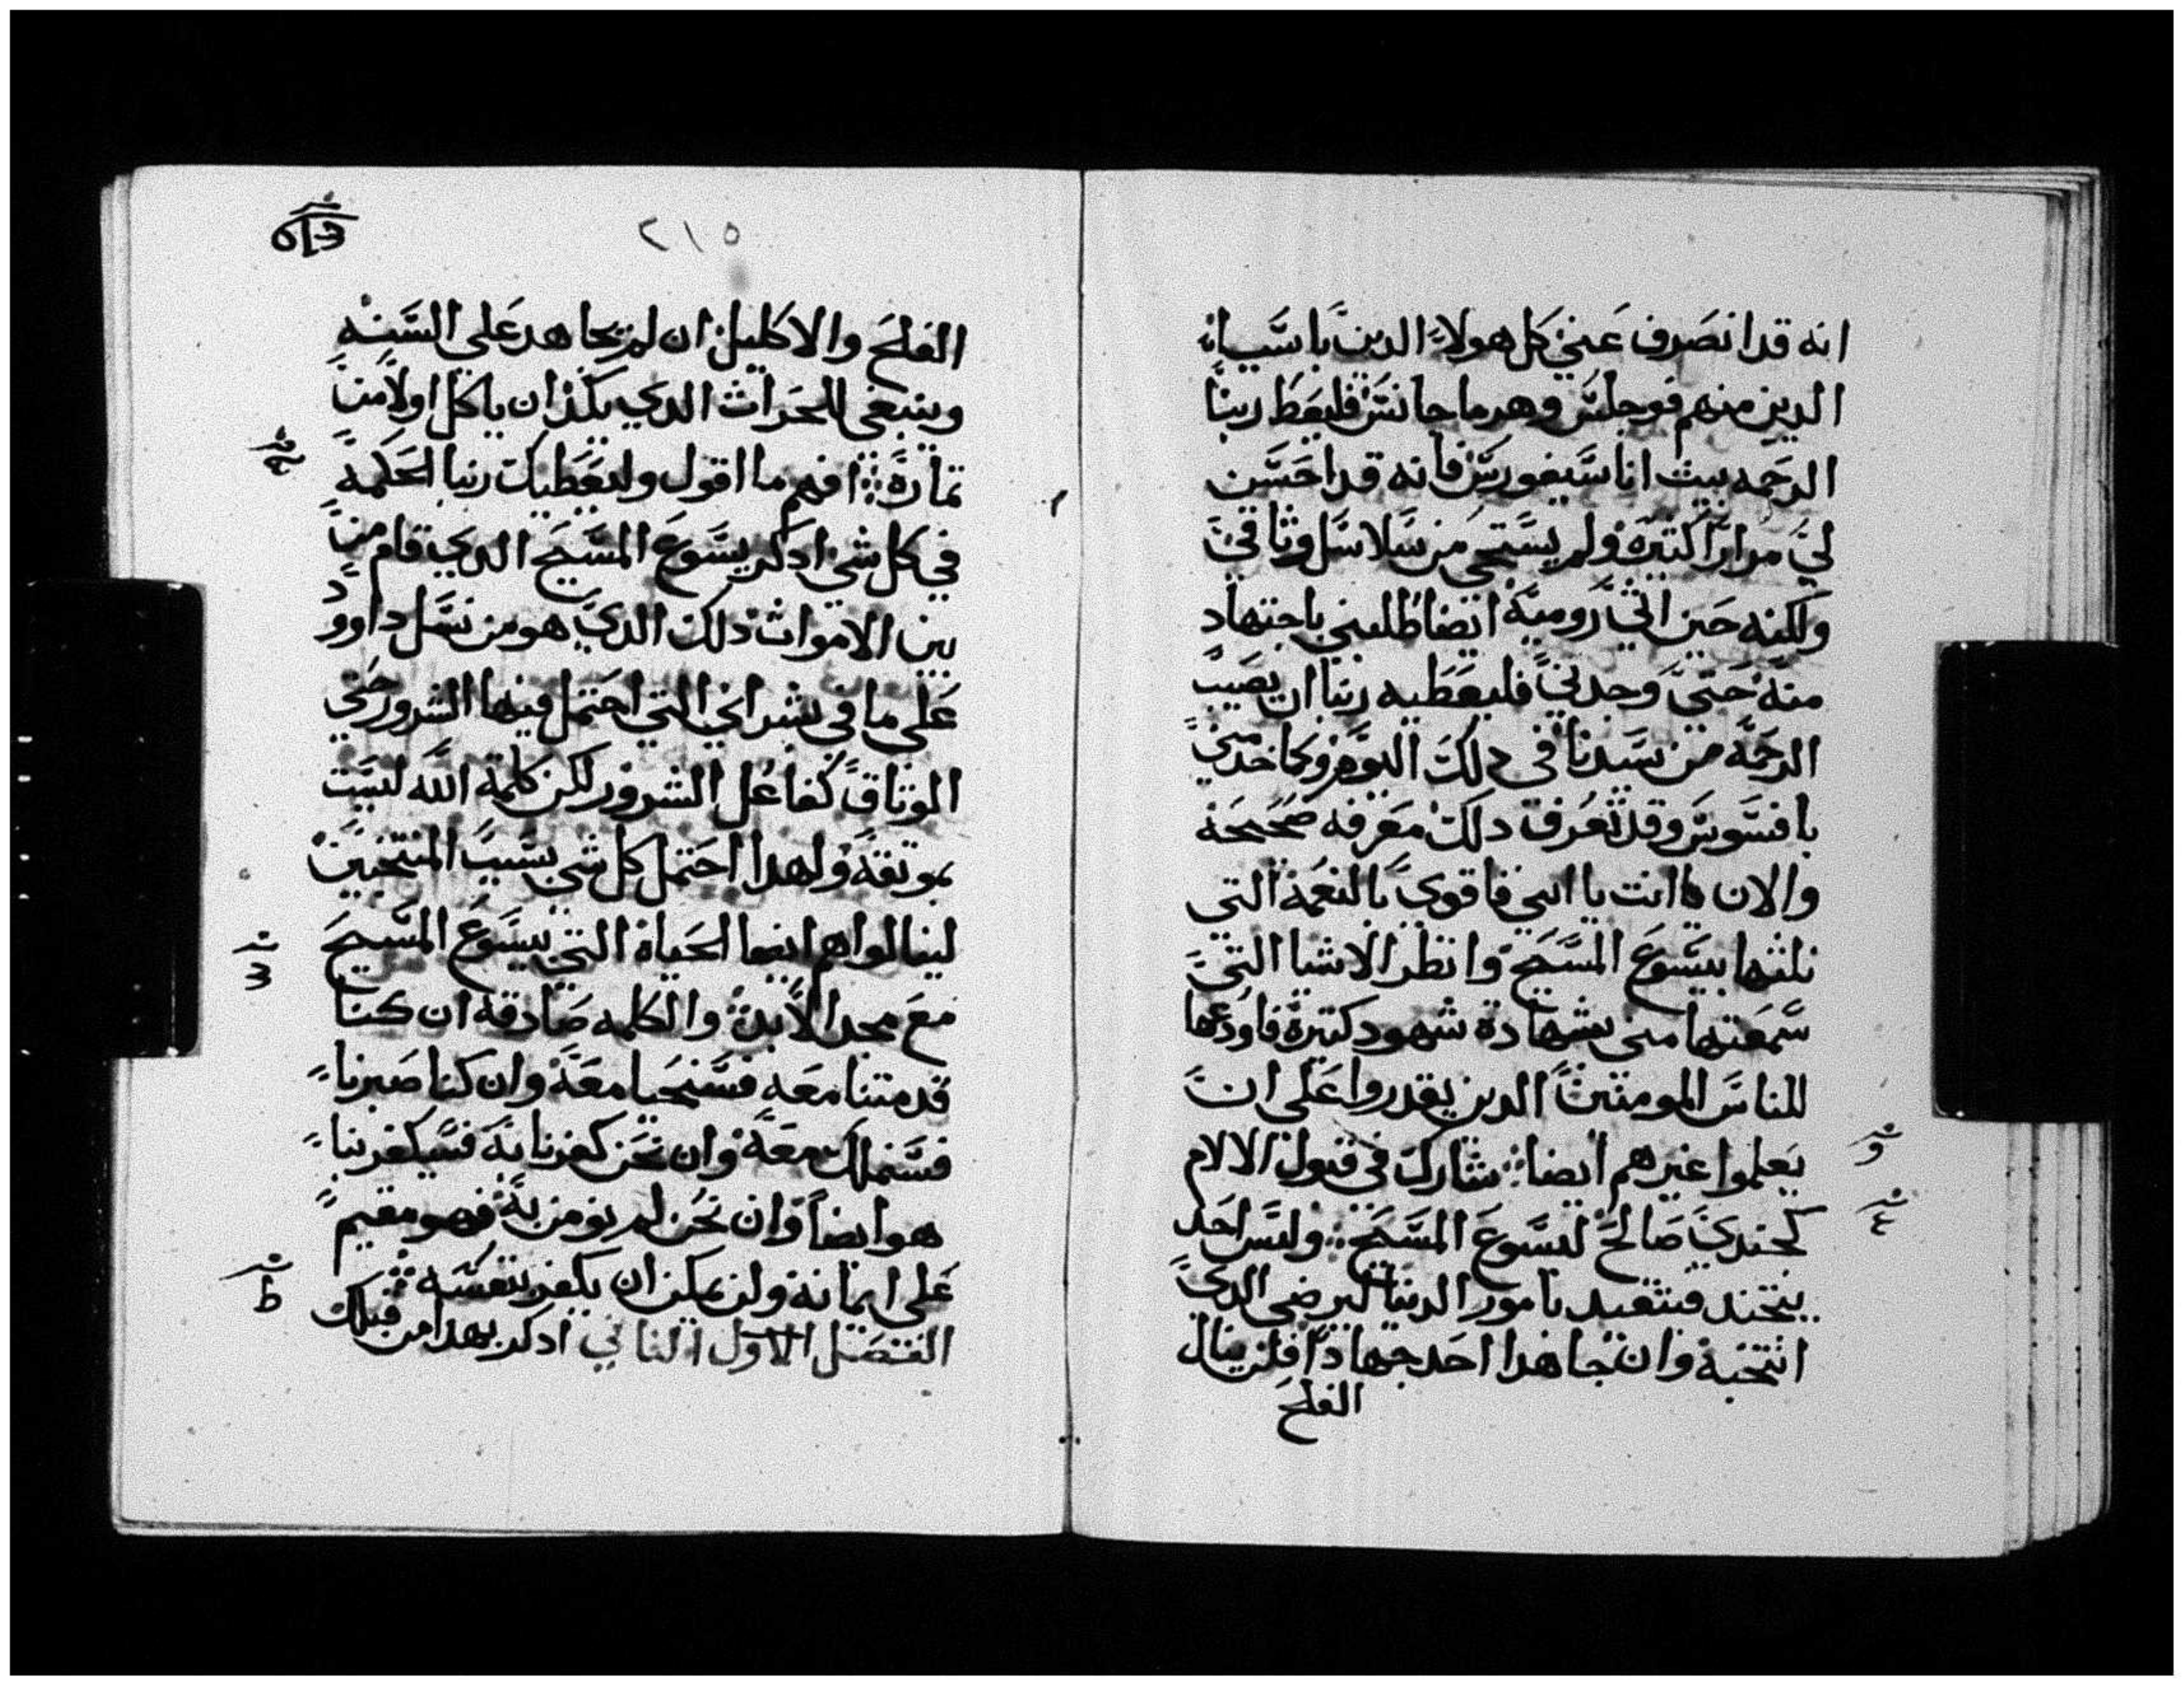 انه قد انصرف عني كل هولاء الدين باسيا
الدين منهم فوجلس وهرماجانس فليعط ربنا
الرحمه بيت اناسيفورس فانه قد احسن
لي مرارا كتيره ولم يستحي من سلاسل وثاقي
ولكنه حين اتي رومية ايضا طلبني باجتهاد
منه حتي وجدني فليعطيه ربنا ان يصيب
الرحمه من سيدنا في دلك اليوم وكما خدمني
بافسوس وقد تعرف دلك معرفه صحيحه
والان انت يا ابني فاقوي بالنعمة التي
نلتها بيسوع المسيح وانظر الاشيا التي
سمعتها مني بشهادة شهود كتيرة فاودعها
للناس المومنين الدين يقدروا علي ان
يعلموا غيرهم ايضا شارك في قبول الالام
كجندي صالح ليسوع المسيح وليس احد
يتجند فيتقيد بامور الدنيا ليرضي الدي
انتخبه وان جاهدا احد جهادا فلن ينال
الفلح
٢١٥
الفلح والاكليل ان لم يجاهد علي السنه
وينبغي للحرات الدي يكد ان ياكل اولا من
تماره افهم ما اقول وليعطيك ربنا الحكمة
في كل شي ادكر يسوع المسيح الدي قام من
بين الاموات دلك الدي هو من نسل داوود
علي ما في بشراي التي احتمل فيها الشرور حتي
الوتاق كفاعل الشرور لكن كلمة الله ليست
بموتقه ولهدا احتمل كل شي بسبب المنتخبين
لينالوا هم ايضا الحياة التي بيسوع المسيح
مع مجد الابد والكلمه صادقه ان كنا
قد متنا معه فسنحيا معه وان كنا صبرنا
فسنملك معه وان نحن كفرنا به فسيكفر بنا
هو ايضا وان نحن لم نومن به فهو مقيم
علي ايمانه ولن يمكن ان يكفر بنفسه
الفصل الاول التاني ادكر بهدا من قبلك